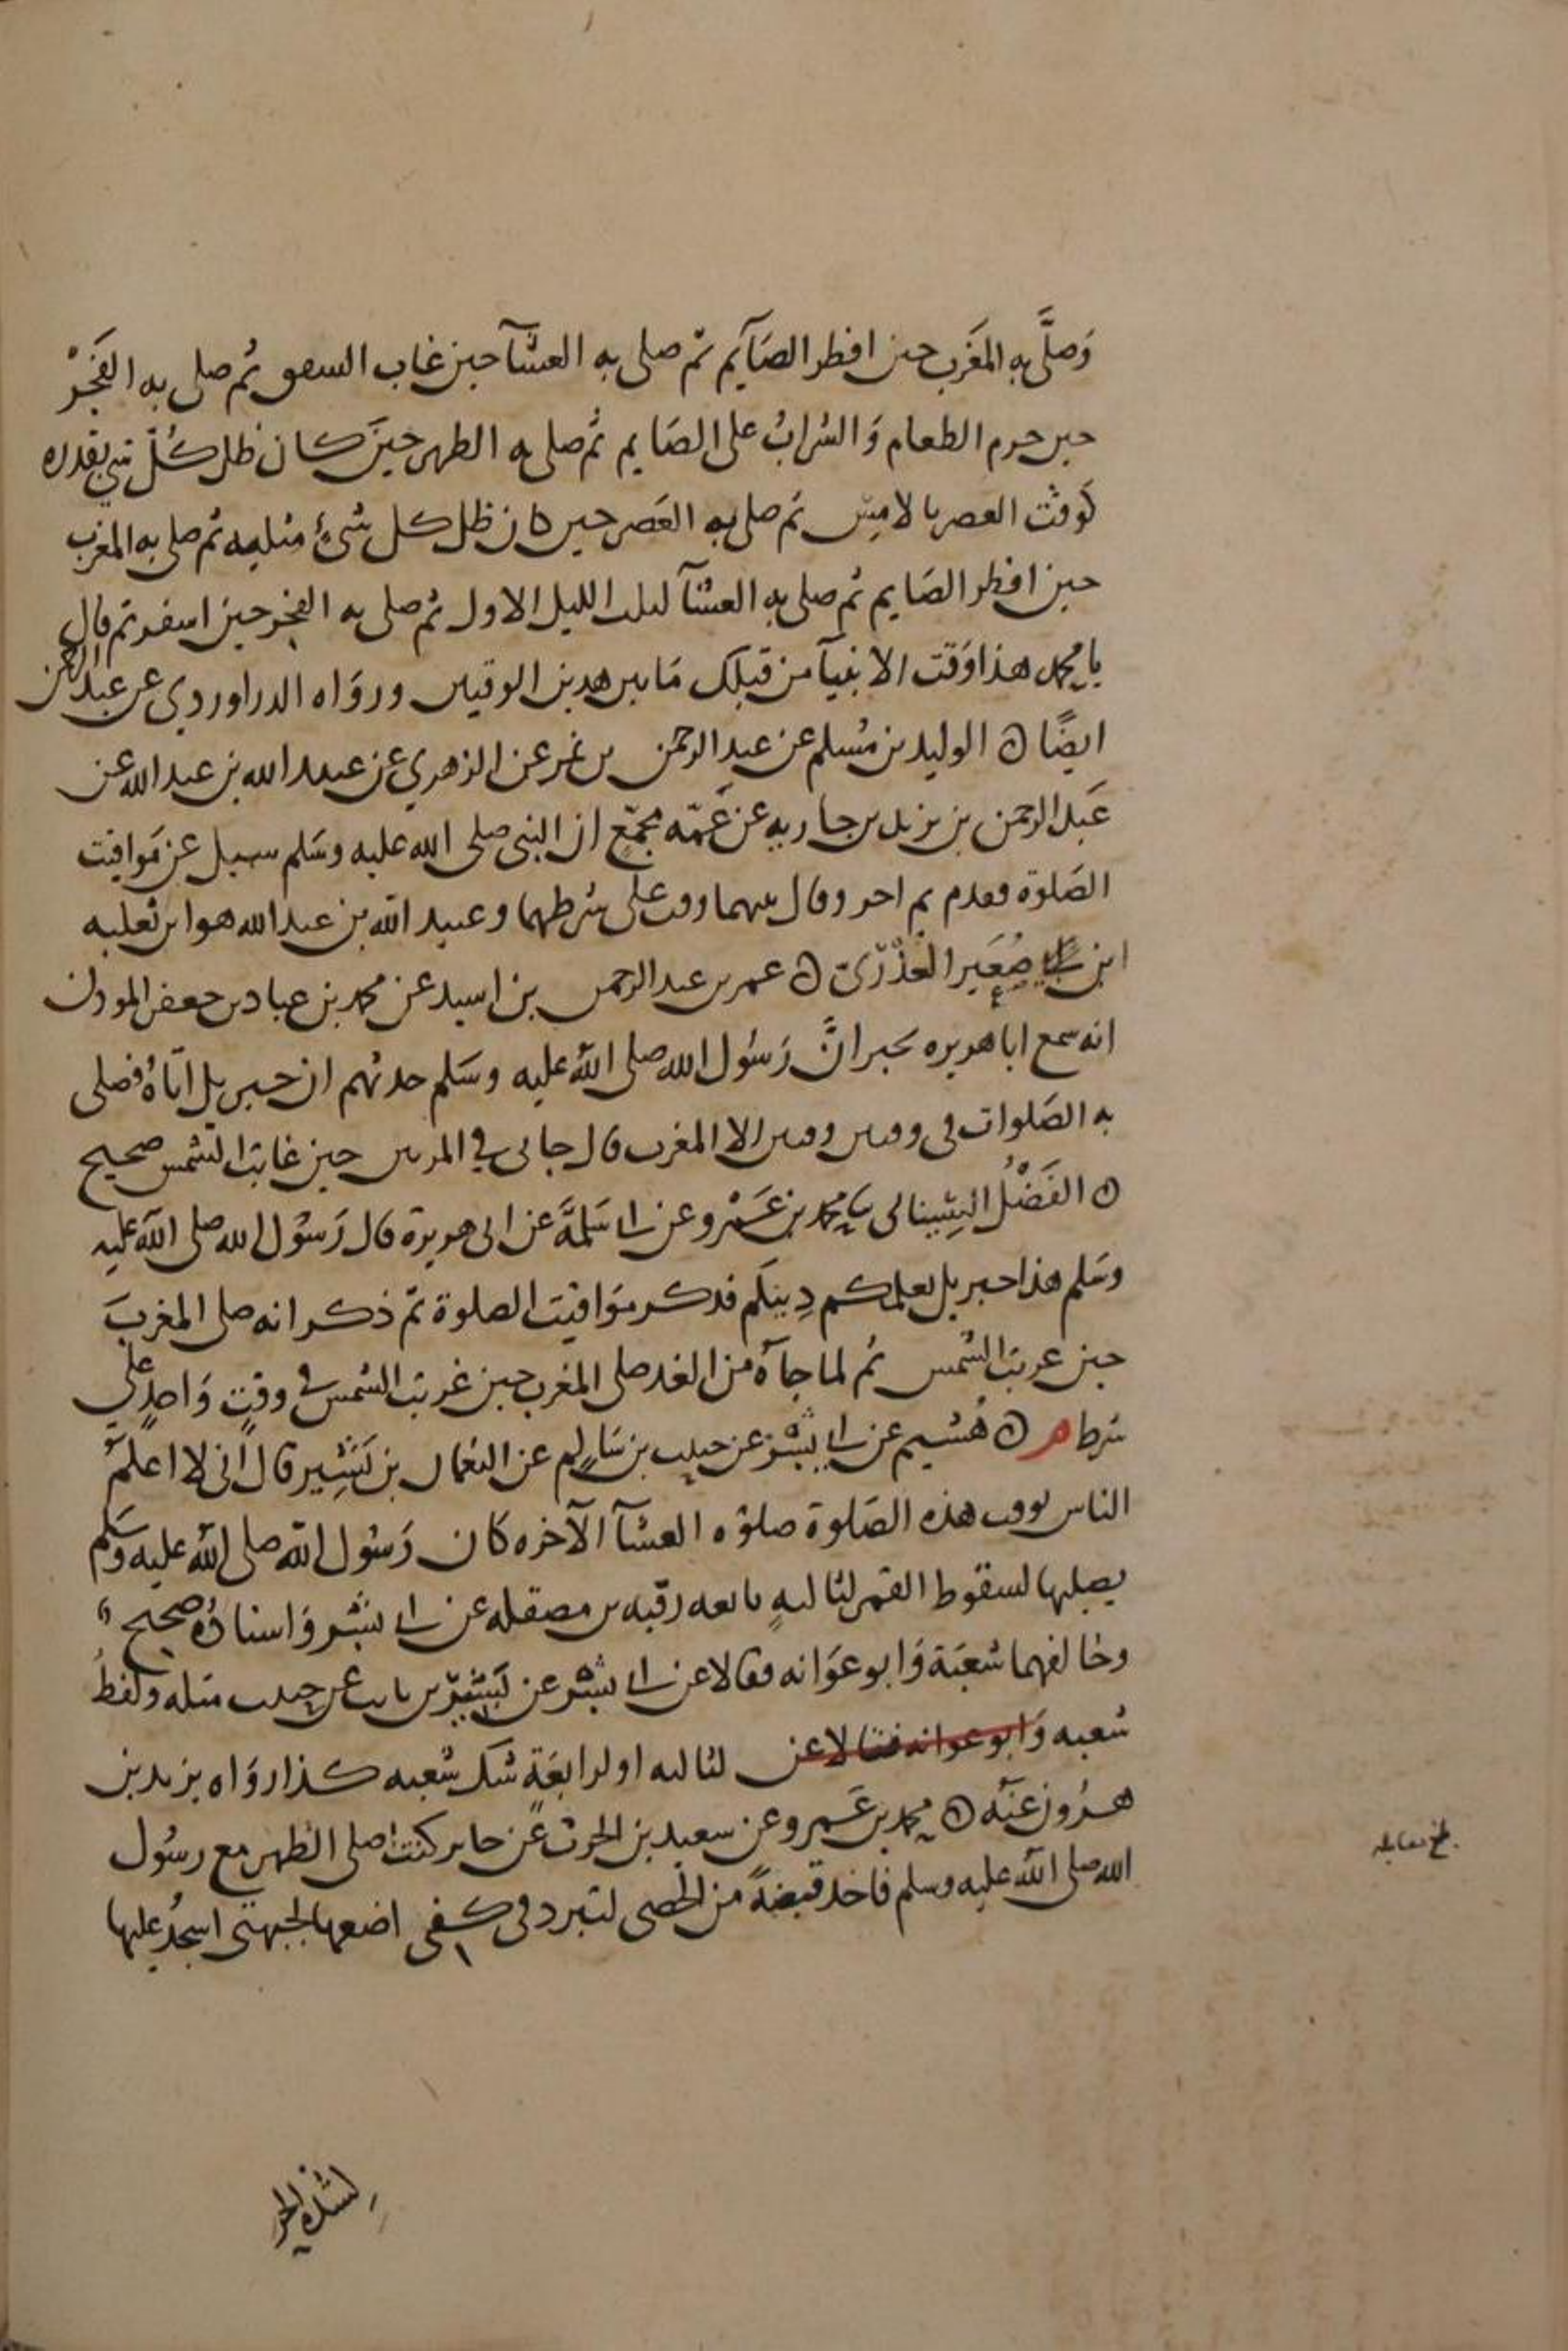 وَصلَّى به المغَرب حين افطر الصَايَم ثم صلى به العشَآ حين غاب الشفق ثُم صلى به الفَجْر
حين حرم الطعام وَالشرابُ على الصَايم ثُم صلى به الظهر حينَ كان ظل كُلّ شي بقدره
كَوقت العصر بالامس ثم صلى به العَصر حين كان ظل كل شئ مثليه ثم صلى به المغرب
حين افطر الصَايم ثم صلى به العشَآ ثلث الليل الاول ثُم صلى به الفجر حين اسفر ثم قال
يا محمد هذا وَقت الانبيآ من قبلك مَا بين هدين الوقتين وروَاه الدراوردي عن عبد الرحمن
ايضًا ۞ الوليد بن مُسلم عن عبد الرحمن بن نمر عن الزهري عن عبيد الله بن عبد الله عن
عَبد الرحمن بن يزيد بن جاريه عن عَمّه مجمّع ان النبي صلى الله عليه وسَلم سيل عن مَواقيت
الصَلوة فقدم ثم اخر وقال بينهما وقت على شرطهما وعبيد الله بن عبد الله هو ابن ثعلبه
ابن صُعَير العُذْرّى ۞ عمر بن عبد الرحمن بن اسيد عن محمد بن عباد بن جعفر الموذن
انه سمع ابا هريره يخبر انَّ رَسُول الله صلى الله عليه وسَلم حدثهم ان جبريل اتاهُ فصلى
به الصَلوات فى وقتين وقتين الا المغرب قال جانى في المرتين حين غابت الشمس صحيح
۞ الفَضْلُ السِّينانى محمد بن عَمْرو عن ابى سَلمَةَ عن ابى هريرة قال رَسُول الله صلى الله عليه
وسَلم هذا جبريل يعلمكم دِينكم فدكر موَاقيت الصلوة ثم ذكر انه صلى المغربَ
حين غربت الشمس ثم لما جآهُ من الغد صلى المغرب حين غربت الشمس في وقتٍ وَاحدٍ على
شرط م ۞ هُشَيم عن ابى بِشْر عن حبيب بن سَالم عن النعمان بن بَشِير قال انى لا اعلمُ
الناس بوقت هذه الصَلوة صلوه العشآ الآخره كان رَسُول الله صلى الله عليه وسَلم
يصليها لسقوط القمر لثالثةٍ تابعه رقبه بن مصقله عن ابى بشر وَاسنادُه صحيح
وخالفهما شعبَة وَابو عوَانه فقالا عن ابى بشر عن بَشيْر بن ثابت عن حبيب مثله ولَفظُ
شعبه وَابو عوانه فقالا عن لثالثه او لرابعَةٍ شك شعبه كذا روَاه يزيد بن
هرُون عَنْه ۞ محمد بن عَمرو عن سعيد بن الحرث عن جابر كنت اصلى الظهر مع رسُول
الله صلى الله عليه وسلم فاخد قبضةً من الحصى لتبرد فى كفى اضعها لجبهتى اسجدُ عليها
لشدة الحر
بلغ مقابله